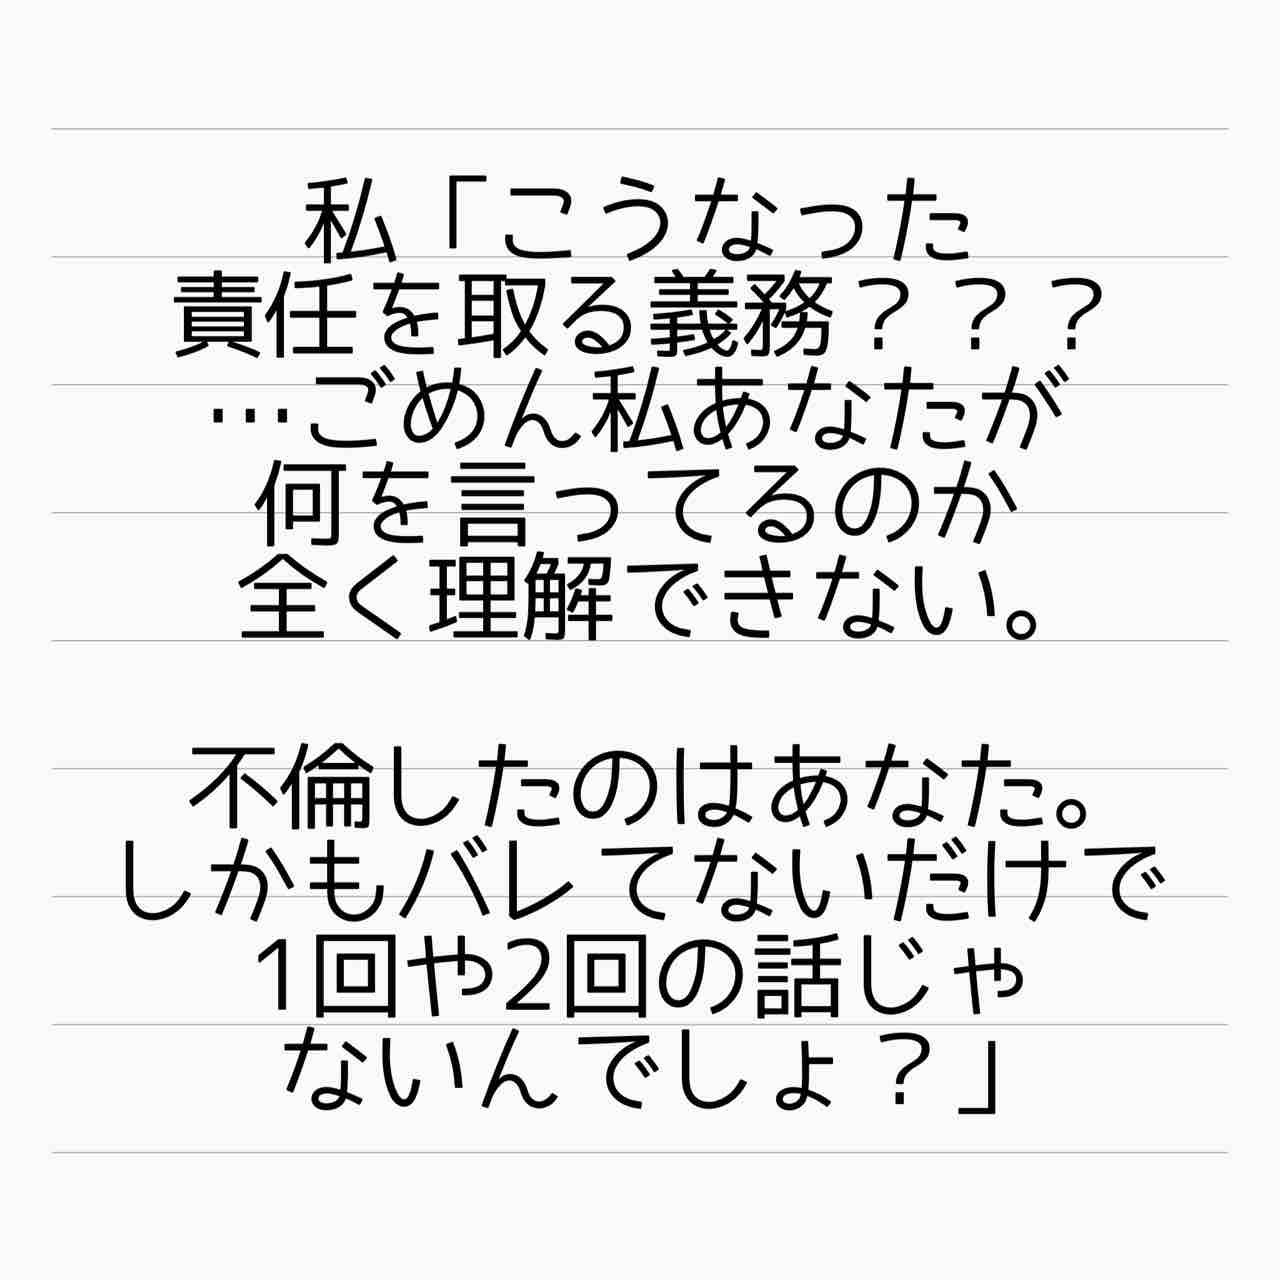 私「こうなった
責任を取る義務？？？
…ごめん私あなたが
何を言ってるのか
全く理解できない。
不倫したのはあなた。
しかもバレてないだけで
1回や2回の話じゃ
ないんでしょ？」